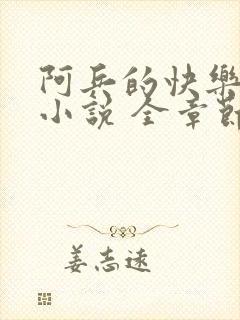 阿兵的快樂
小說 全章節
姜志遠